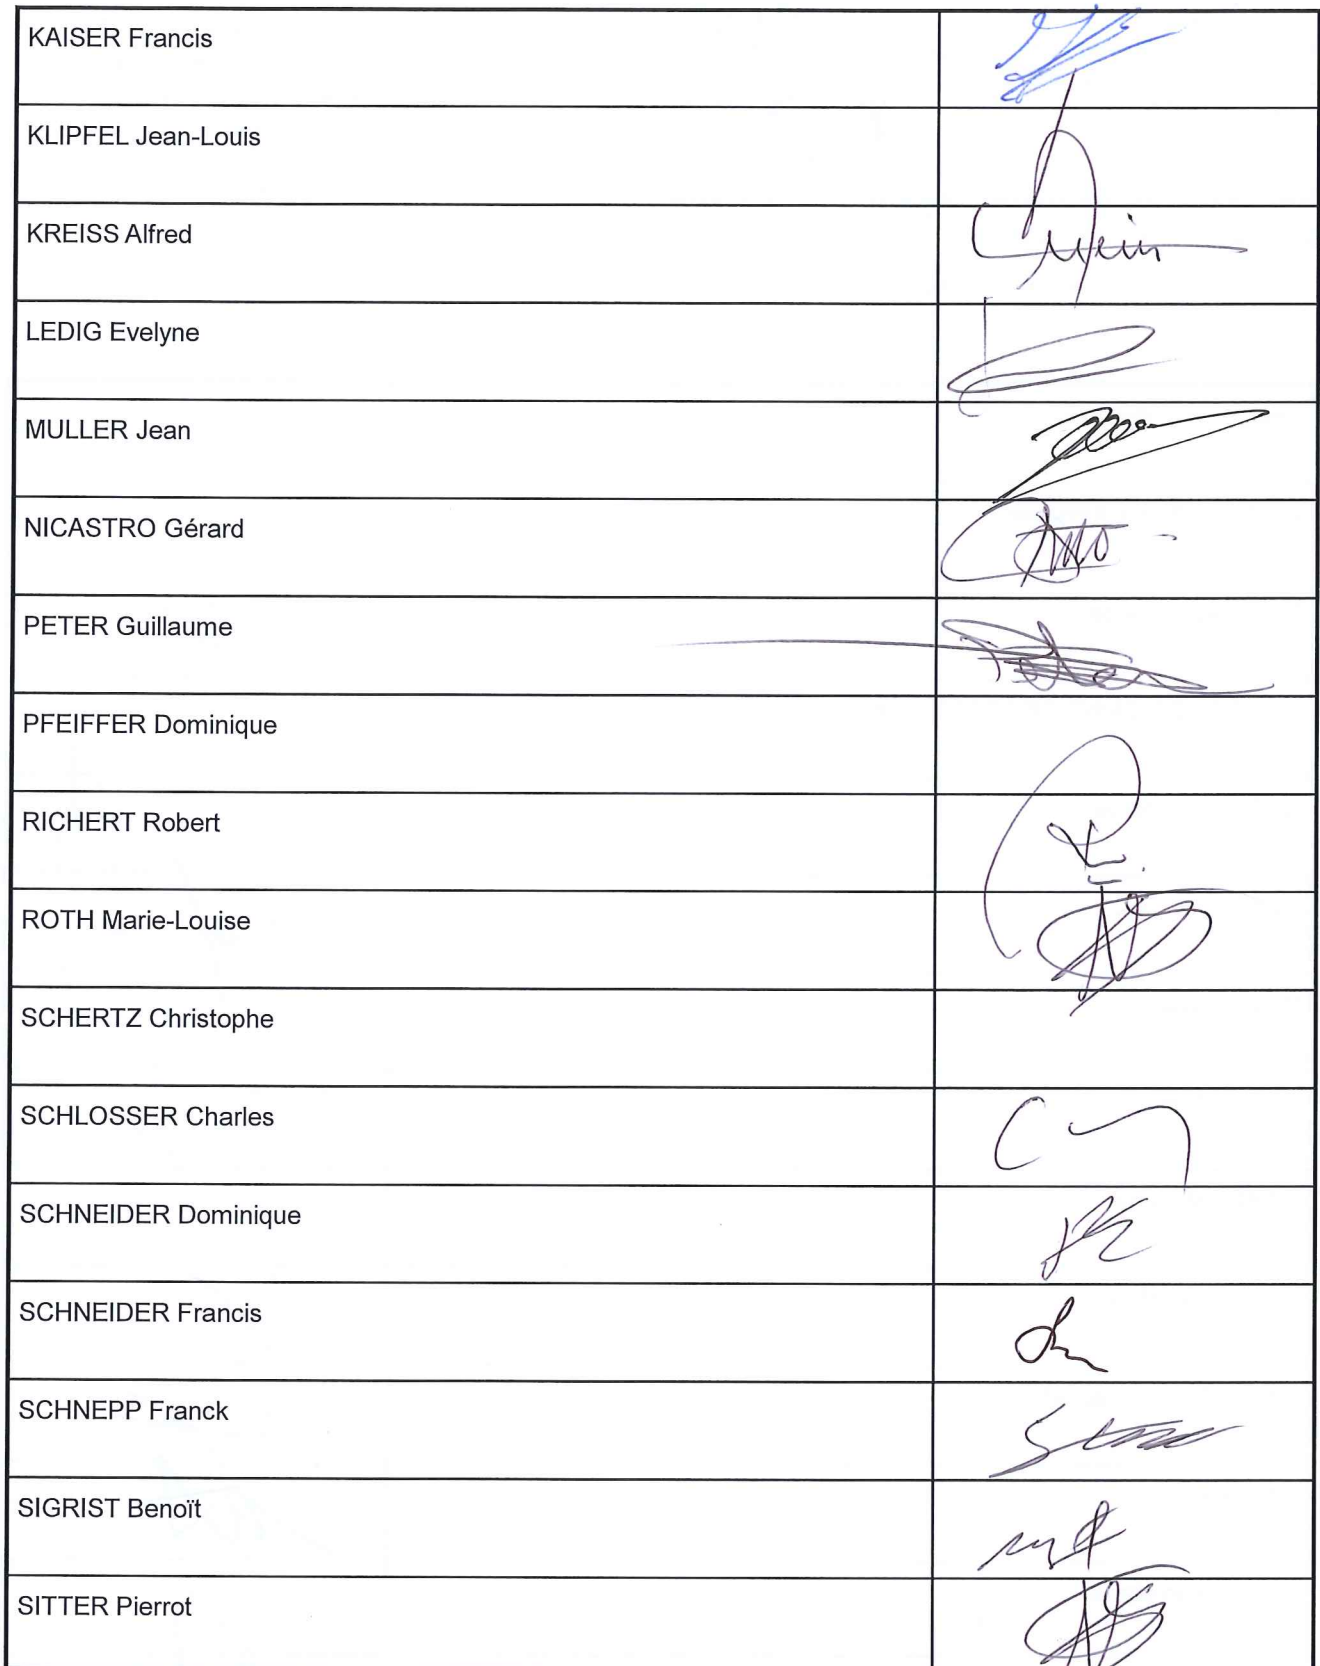 KAISER Francis
KLIPFEL Jean-Louis
KREISS Alfred
LEDIG Evelyne
MULLER Jean
NICASTRO Gérard
PETER Guillaume
PFEIFFER Dominique
RICHERT Robert
ROTH Marie-Louise
SCHERTZ Christophe
SCHLOSSER Charles
SCHNEIDER Dominique
SCHNEIDER Francis
SCHNEPP Franck
SIGRIST Benoït
SITTER Pierrot